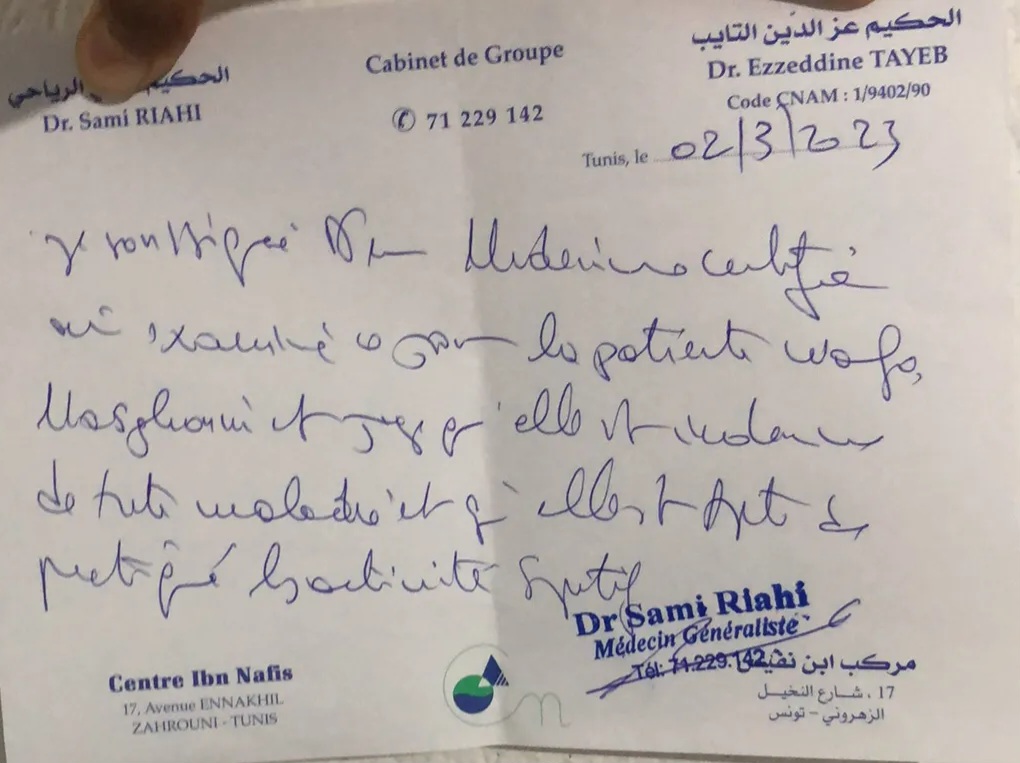 الحكيم الرياحي
Dr. Sami RIAHI
Cabinet de Groupe
✆ 71 229 142
الحكيم عز الدّين التايب
Dr. Ezzeddine TAYEB
Code CNAM : 1/9402/90
Tunis, le 02/3/2023
je soussigné Dr Medecin certifie
ai examiné ce jour la patiente wafa
et juge qu'elle est indemne
de toute maladie et qu'elle est apte de
pratiqué l'activité sportif
Dr Sami Riahi
Médecin Généraliste
Tél: 71.229.142
Centre Ibn Nafis
17, Avenue ENNAKHIL
ZAHROUNI - TUNIS
مركب ابن نفيس
17 ، شارع النخيل
الزهروني – تونس